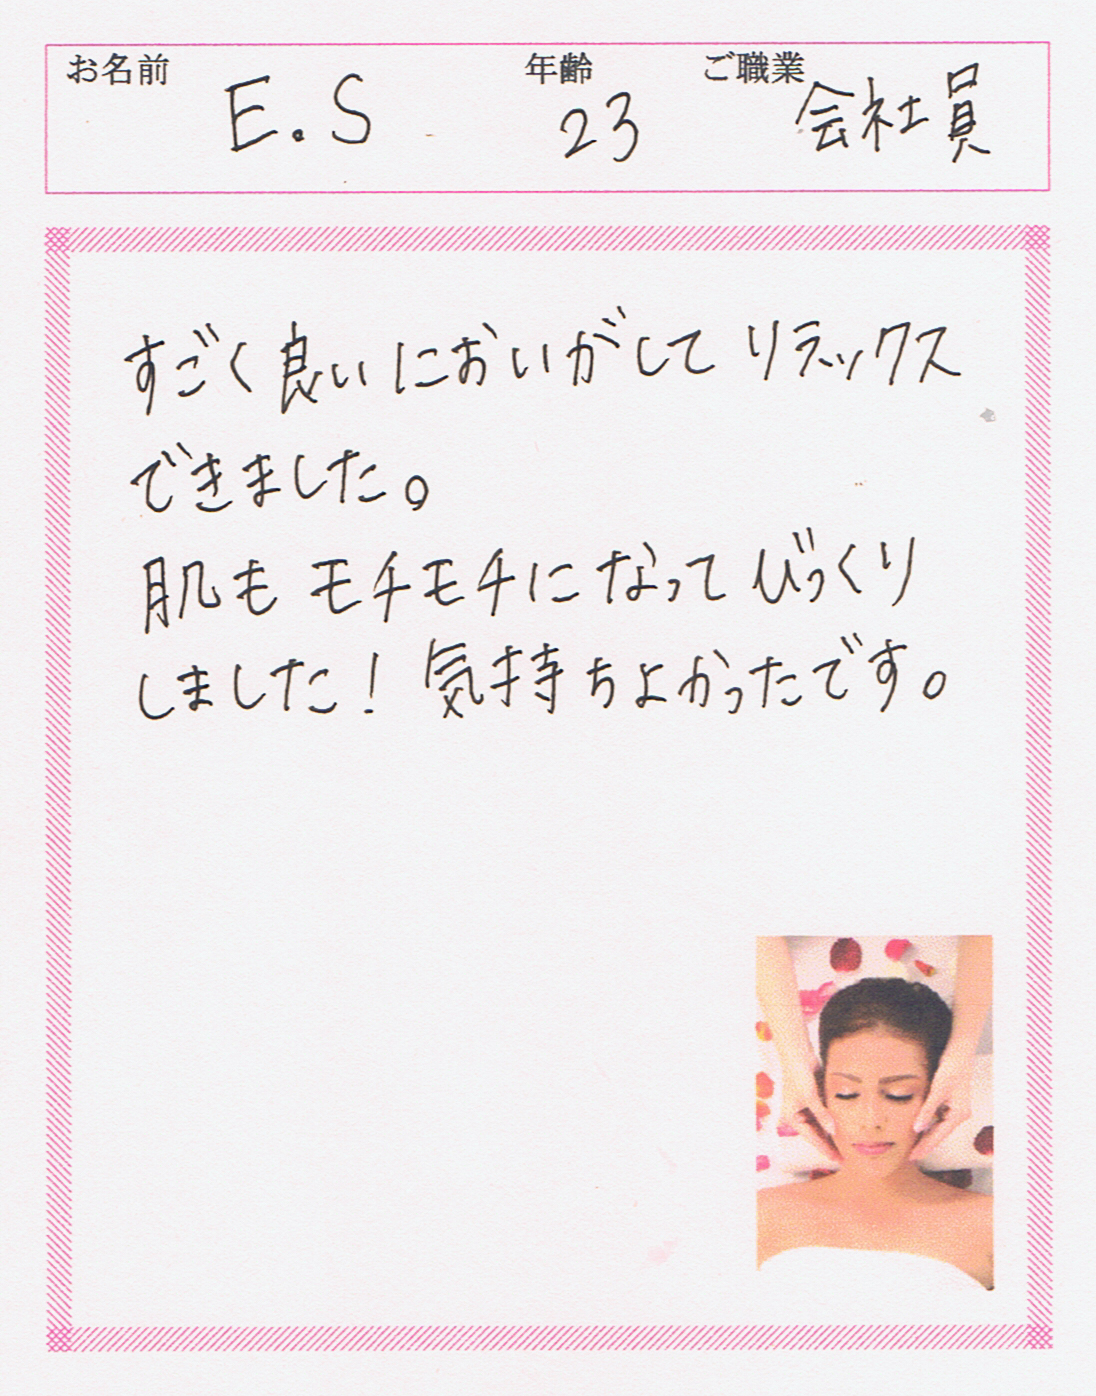 お名前 年齢 ご職業
E.S 23 会社員
すごく良いにおいがしてリラックス
できました。
肌もモチモチになってびっくり
しました！気持ちよかったです。